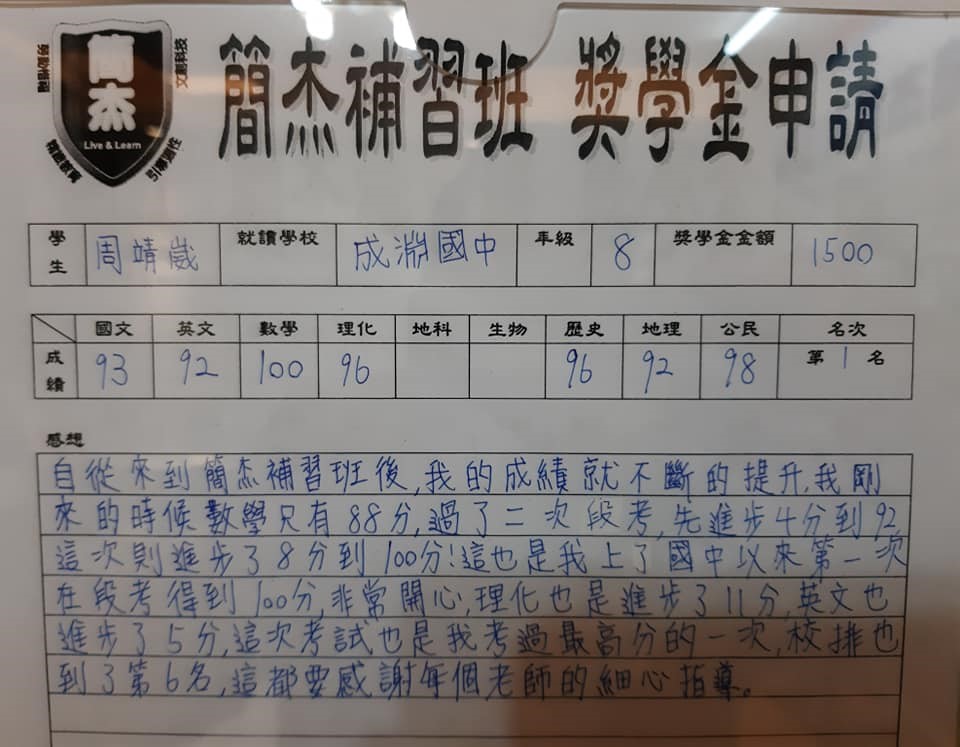 簡杰
Live & Learn
文創科技
簡杰補習班 獎學金申請
學生 周靖崴 就讀學校 成淵國中 年級 8 獎學金金額 1500
國文 英文 數學 理化 地科 生物 歷史 地理 公民 名次
成績 93 92 100 96 96 92 98 第1名
感想
自從來到簡杰補習班後,我的成績就不斷的提升,我剛
來的時候數學只有88分,過了二次段考,先進步4分到92,
這次則進步了8分到100分!這也是我上了國中以來第一次
在段考得到100分,非常開心,理化也是進步了11分,英文也
進步了5分,這次考試也是我考過最高分的一次,校排也
到了第6名,這都要感謝每個老師的細心指導。